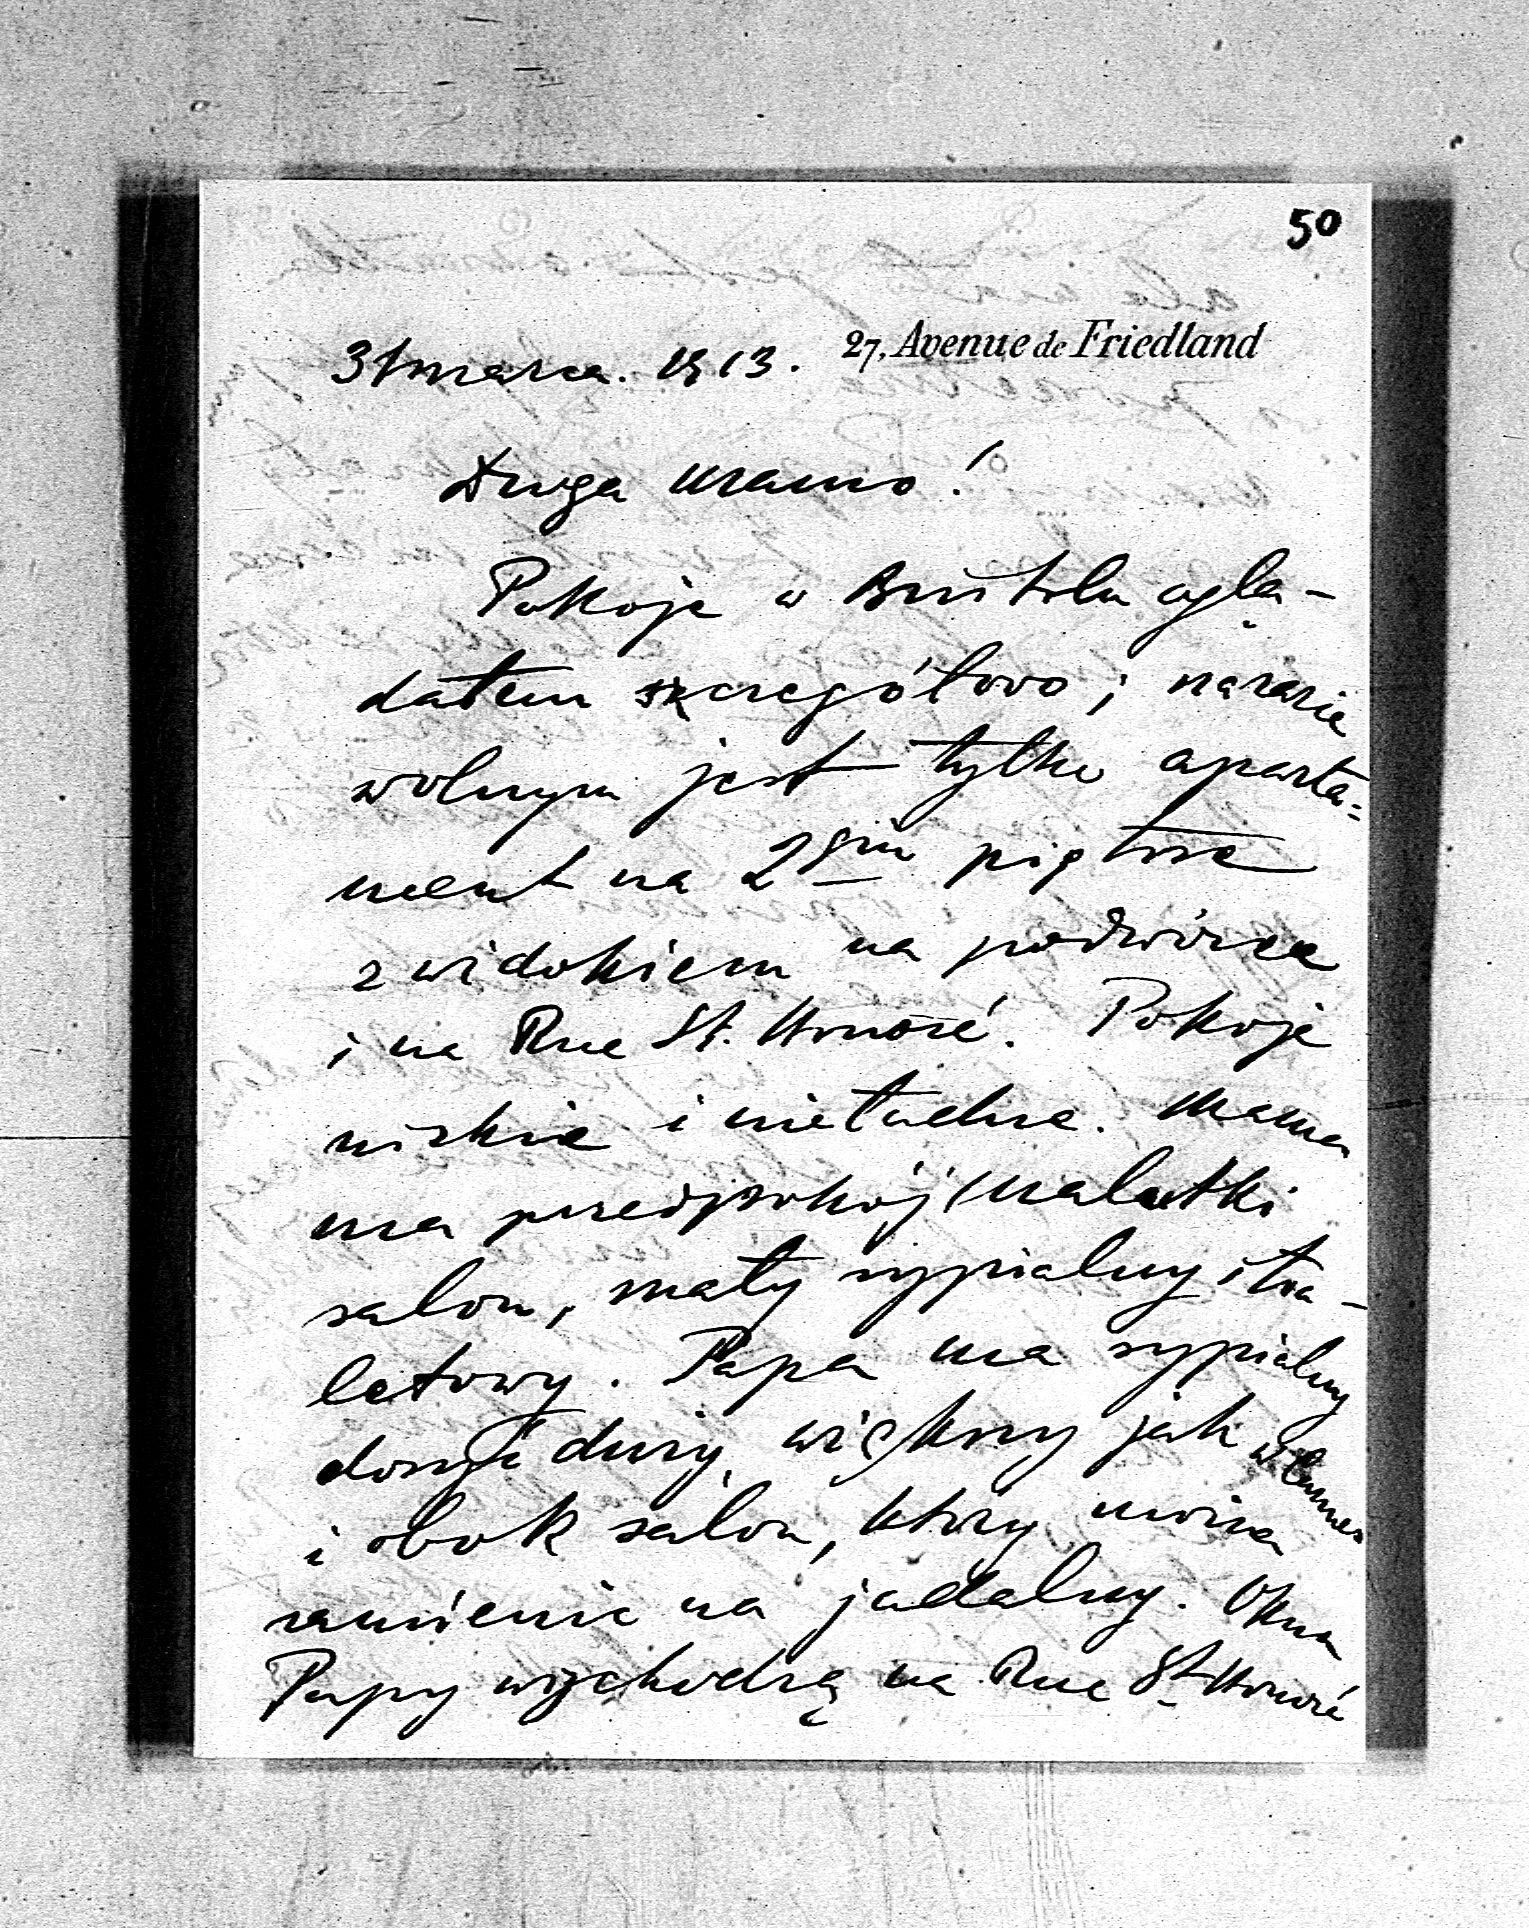 50
27, Avenue de Friedland
31 marca. 1913.
Droga Mamo!
Pokoje w Bristolu oglą-
dałem szczegółowo; narazie
wolnym jest tylko aparta-
ment na 2gim piętrze
z widokiem na podwórze
i na Rue St. Honoré. Pokoje
niskie i nieładne. Mama
ma przedpokój, malutki
salon, mały sypialny i toa-
letowy. Papa ma sypialny
dosyć duży, większy jak
i obok salon, który można
zamienić na jadalny. Okna
Papy wychodzą na Rue St Honoré